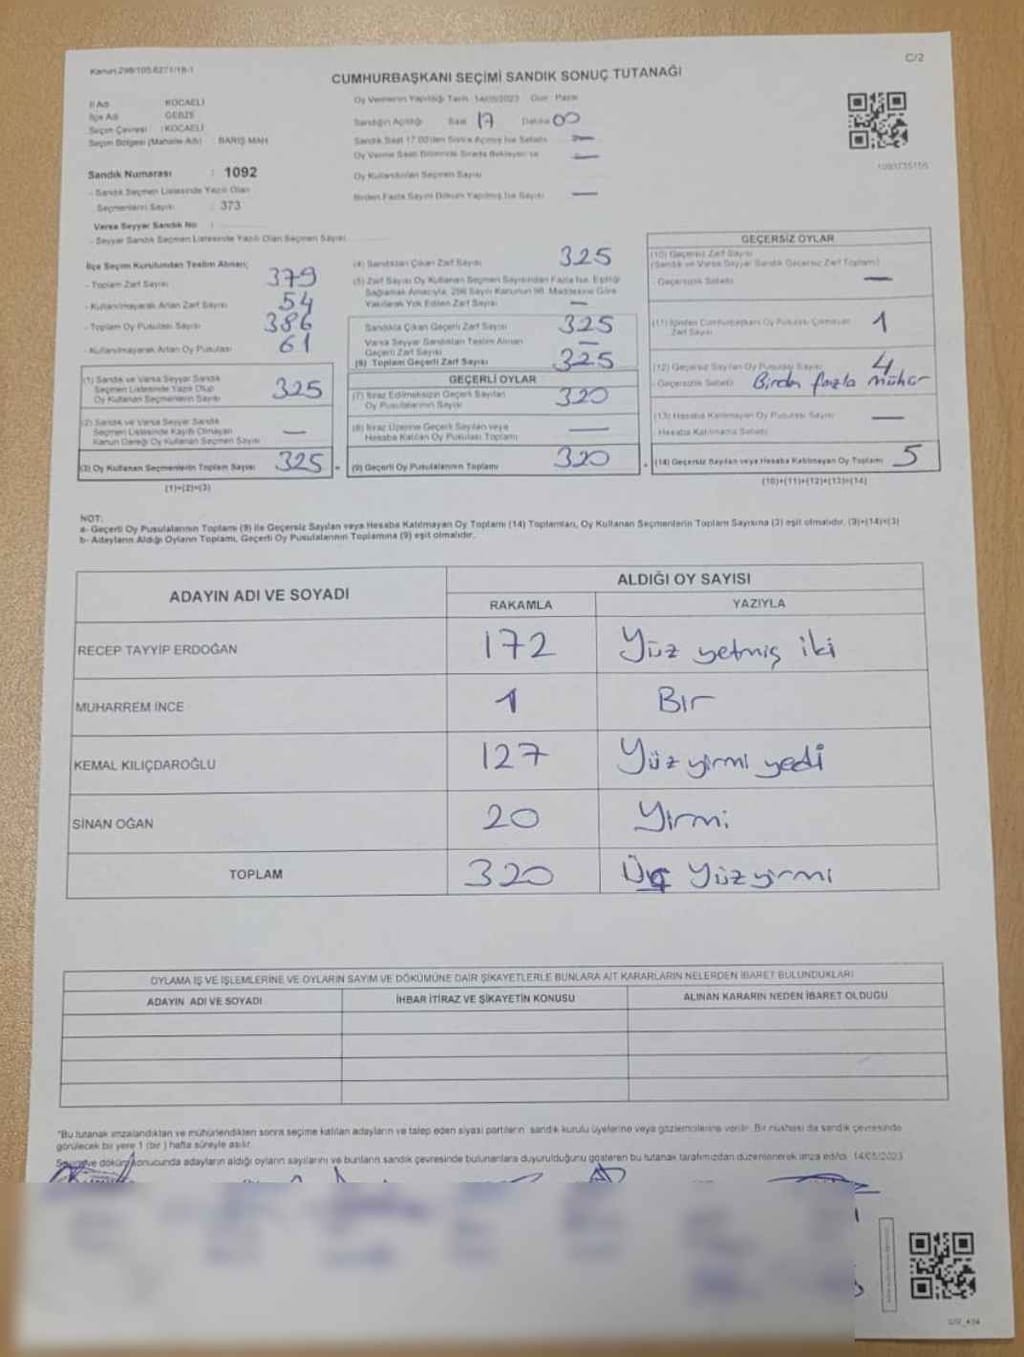 Kanun:298/105.6271/18-1
C/2
CUMHURBAŞKANI SEÇİMİ SANDIK SONUÇ TUTANAĞI
İl Adı KOCAELİ
İlçe Adı GEBZE
Seçim Çevresi : KOCAELİ
Seçim Bölgesi (Mahalle Adı) : BARIŞ MAH
Sandık Numarası : 1092
- Sandık Seçmen Listesinde Yazılı Olan
Seçmenlerin Sayısı : 373
Varsa Seyyar Sandık No :
- Seyyar Sandık Seçmen Listesinde Yazılı Olan Seçmen Sayısı
Oy Vermenin Yapıldığı Tarih 14/05/2023 Gün Pazar
Sandığın Açıldığı Saat 17 Dakika 00
Sandık Saat 17:00'den Sonra Açılmış İse Sebebi —
Oy Verme Saati Bitiminde Sırada Bekleyen ve —
Oy Kullandırılan Seçmen Sayısı
Birden Fazla Sayım Döküm Yapılmış İse Sayısı —
İlçe Seçim Kurulundan Teslim Alınan;
- Toplam Zarf Sayısı 379
- Kullanılmayarak Artan Zarf Sayısı 54
- Toplam Oy Pusulası Sayısı 386
- Kullanılmayarak Artan Oy Pusulası 61
(1) Sandık ve Varsa Seyyar Sandık
Seçmen Listesinde Yazılı Olup
Oy Kullanan Seçmenlerin Sayısı 325
(2) Sandık ve Varsa Seyyar Sandık
Seçmen Listesinde Kayıtlı Olmayan
Kanun Gereği Oy Kullanan Seçmen Sayısı —
(3) Oy Kullanan Seçmenlerin Toplam Sayısı 325 =
(1)+(2)=(3)
(4) Sandıktan Çıkan Zarf Sayısı 325
(5) Zarf Sayısı Oy Kullanan Seçmen Sayısından Fazla İse, Eşitliği
Sağlamak Amacıyla, 298 Sayılı Kanunun 98. Maddesine Göre
Yakılarak Yok Edilen Zarf Sayısı —
Sandıkta Çıkan Geçerli Zarf Sayısı 325
Varsa Seyyar Sandıktan Teslim Alınan
Geçerli Zarf Sayısı —
(6) Toplam Geçerli Zarf Sayısı 325
GEÇERLİ OYLAR
(7) İtiraz Edilmeksizin Geçerli Sayılan
Oy Pusulalarının Sayısı 320
(8) İtiraz Üzerine Geçerli Sayılan veya
Hesaba Katılan Oy Pusulası Toplamı —
(9) Geçerli Oy Pusulalarının Toplamı 320 +
GEÇERSİZ OYLAR
(10) Geçersiz Zarf Sayısı
(Sandık ve Varsa Seyyar Sandık Geçersiz Zarf Toplamı)
- Geçersizlik Sebebi —
(11) İçinden Cumhurbaşkanı Oy Pusulası Çıkmayan
Zarf Sayısı 1
(12) Geçersiz Sayılan Oy Pusulası Sayısı 4
- Geçersizlik Sebebi Birden fazla mühür
(13) Hesaba Katılmayan Oy Pusulası Sayısı —
- Hesaba Katılmama Sebebi
(14) Geçersiz Sayılan veya Hesaba Katılmayan Oy Toplamı 5
(10)+(11)+(12)+(13)=(14)
NOT:
a- Geçerli Oy Pusulalarının Toplamı (9) ile Geçersiz Sayılan veya Hesaba Katılmayan Oy Toplamı (14) Toplamları, Oy Kullanan Seçmenlerin Toplam Sayısına (3) eşit olmalıdır. (9)+(14)=(3)
b- Adayların Aldığı Oyların Toplamı, Geçerli Oy Pusulalarının Toplamına (9) eşit olmalıdır.
ADAYIN ADI VE SOYADI ALDIĞI OY SAYISI
RAKAMLA YAZIYLA
RECEP TAYYİP ERDOĞAN 172 Yüz yetmiş iki
MUHARREM İNCE 1 Bir
KEMAL KILIÇDAROĞLU 127 Yüz yirmi yedi
SİNAN OĞAN 20 Yirmi
TOPLAM 320 Üç Yüz yirmi
OYLAMA İŞ VE İŞLEMLERİNE VE OYLARIN SAYIM VE DÖKÜMÜNE DAİR ŞİKAYETLERLE BUNLARA AİT KARARLARIN NELERDEN İBARET BULUNDUKLARI
ADAYIN ADI VE SOYADI İHBAR İTİRAZ VE ŞİKAYETİN KONUSU ALINAN KARARIN NEDEN İBARET OLDUĞU
*Bu tutanak imzalandıktan ve mühürlendikten sonra seçime katılan adayların ve talep eden siyasi partilerin sandık kurulu üyelerine veya gözlemcilerine verilir. Bir nüshası da sandık çevresinde
görülecek bir yere 1 (bir) hafta süreyle asılır.
Sayım ve döküm sonucunda adayların aldığı oyların sayılarını ve bunların sandık çevresinde bulunanlara duyurulduğunu gösteren bu tutanak tarafımızdan düzenlenerek imza edildi. 14/05/2023